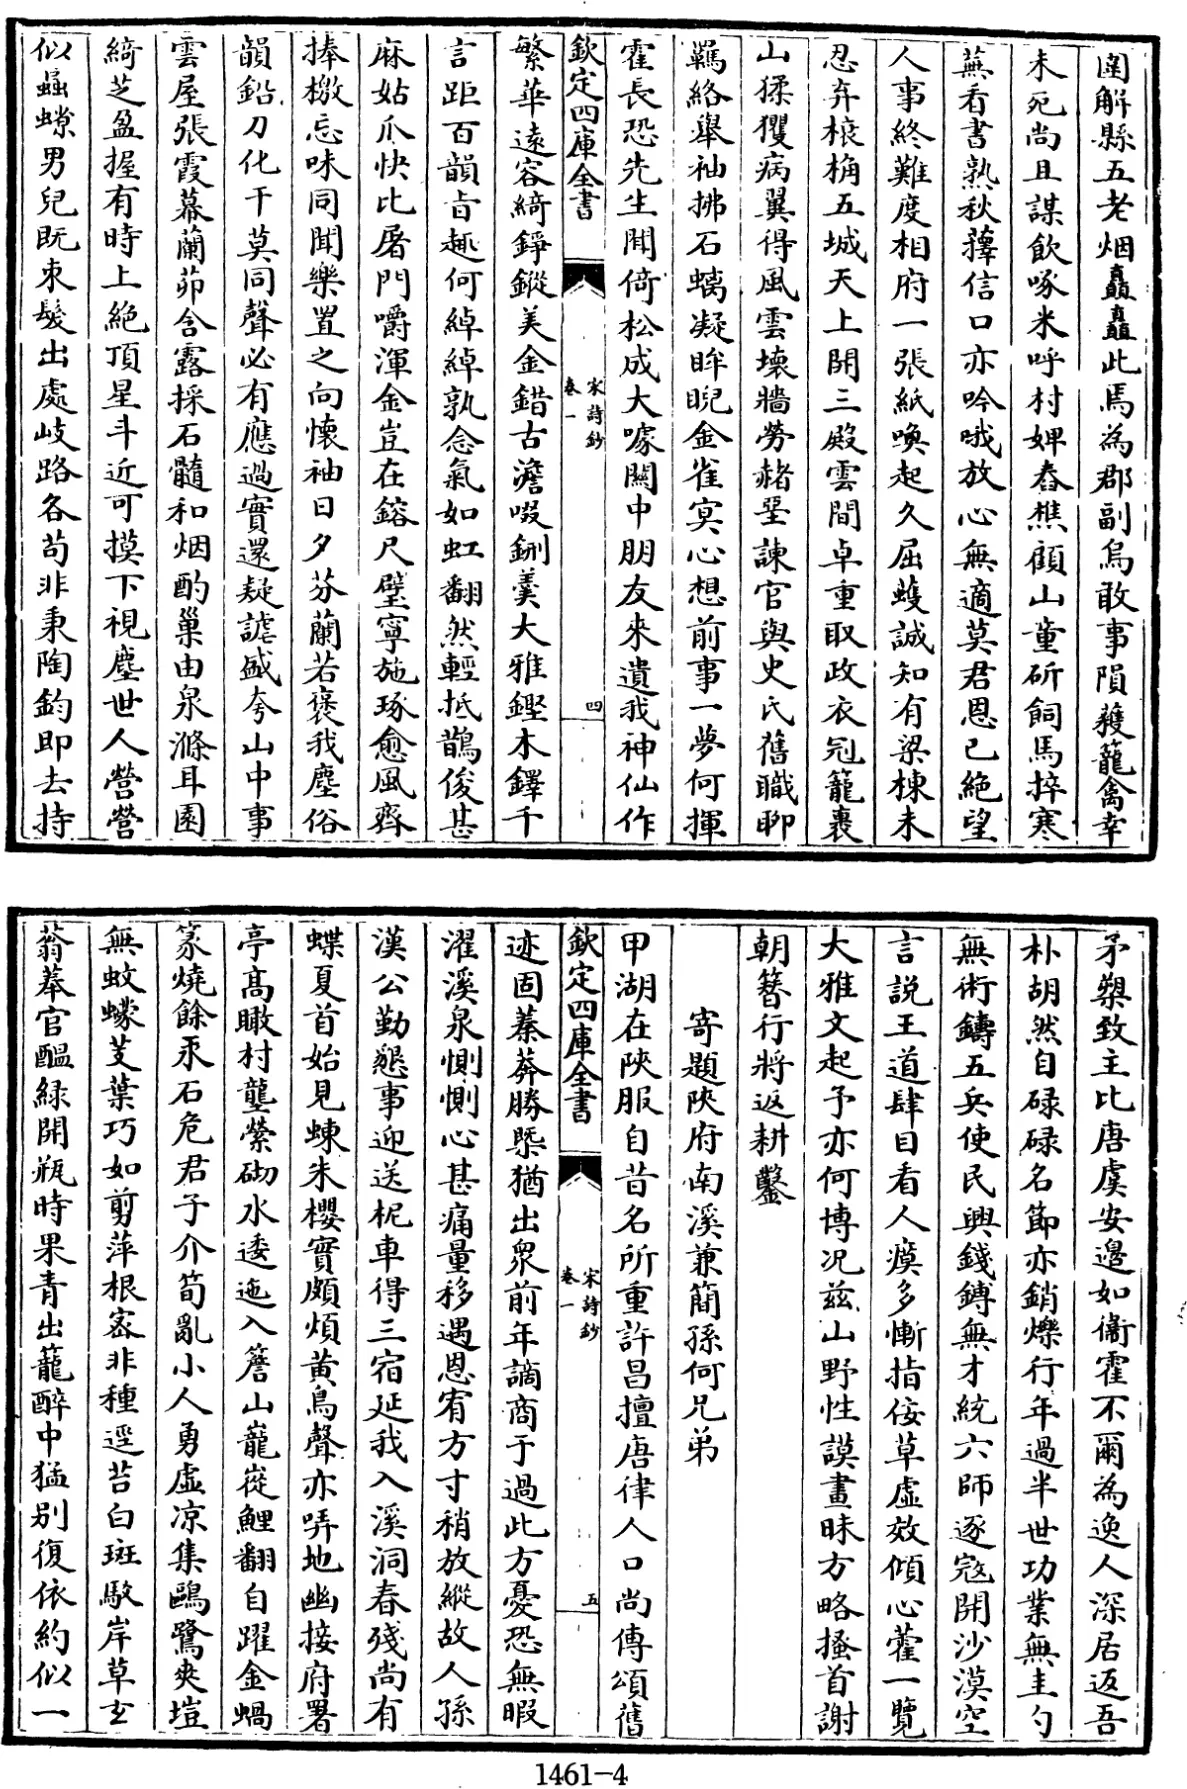 圍解縣五老烟矗矗此焉為郡副烏敢事隕穫籠禽幸
未死尚且謀飲啄米呼村婢舂樵顧山童斫飼馬捽寒
蕪看書熟秋蘀信口亦吟哦放心無適莫君恩已絶望
人事終難度相府一張紙喚起久屈蠖誠知有梁棟未
忍弃榱桷五城天上開三殿雲間卓重取政衣冠籠裹
山猱玃病翼得風雲壞牆勞赭堊諫官與史氏舊職聊
羈絡舉袖拂石螭凝眸睨金雀冥心想前事一夢何揮
霍長恐先生聞倚松成大噱關中朋友來遺我神仙作
欽定四庫全書
宋詩鈔
卷一
四
繁華逺容綺錚鏦美金錯古澹啜鉶羹大雅鏗木鐸千
言距百韻㫖趣何綽綽孰念氣如虹翻然輕抵鵲俊甚
麻姑爪快比屠門嚼渾金豈在鎔尺璧寧施琢愈風齊
捧檄忘味同聞樂置之向懷袖日夕芬蘭若褒我塵俗
韻鉛刀化干莫同聲必有應過實還疑謔盛夸山中事
雲屋張霞幕蘭茆含露採石髓和烟酌巢由泉滌耳園
綺芝盈握有時上絶頂星斗近可摸下視塵世人營營
似蝨螩男兒既束髮出處岐路各茍非秉陶鈞即去持
矛槊致主比唐虞安邊如衞霍不爾為逸人深居返吾
朴胡然自碌碌名節亦銷爍行年過半世功業無圭勺
無術鑄五兵使民興錢鏄無才統六師逐宼開沙漠空
言説王道肆目看人瘼多慚指佞草虛效傾心藿一覽
大雅文起予亦何博况兹山野性謨畫昧方略搔首謝
朝簪行將返耕鑿
寄題陜府南溪兼簡孫何兄弟
甲湖在陜服自昔名所重許昌擅唐律人口尚傳頌舊
欽定四庫全書
宋詩鈔
卷一
五
迹固蓁莽勝槩猶出衆前年謫商于過此方憂恐無暇
濯溪泉惻惻心甚痛量移遇恩宥方寸稍放縱故人孫
漢公勤懇事迎送柅車得三宿延我入溪洞春殘尚有
蝶夏首始見蝀朱櫻實頗煩黄鳥聲亦哢地幽接府署
亭髙瞰村壟縈砌水逶迤入簷山巃嵸鯉翻自躍金蝸
篆燒餘汞石危君子介筍亂小人勇虛凉集鷗鷺爽塏
無蚊蠓芰葉巧如剪萍根宻非種逕苔白斑駮岸草𤣥
蓊菶官醖緑開瓶時果青出籠醉中猛别復依約似一
1461-4